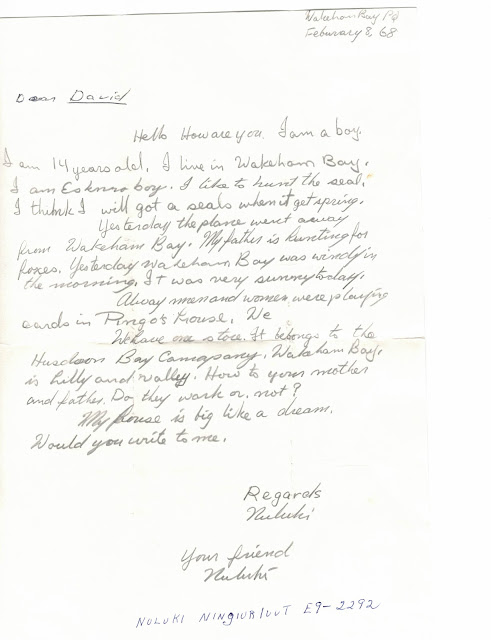 Wakeham Bay PQ
Feburary 8, 68
Dear David
Hello How are you. I am a boy.
I am 14 years old. I live in Wakeham Bay.
I am Eskimo boy. I like to hunt the seal.
I think I will got a seals when it get spring.
Yesterday the plane went away
from Wakeham Bay. My father is hunting for
foxes. Yesterday Wakeham Bay was windy in
the morning. It was very sunny today.
Alway men and women were playing
cards in Pingo's house. We
We have one store. It belongs to the
Husdson Bay Comapany. Wakeham Bay.
is hilly and valley. How to your mother
and father. Do they work or not?
My house is big like a dream.
Would you write to me.
Regards
Nuluki
Your friend
Nuluki
NULUKI NINGIURIUVT E9-2292